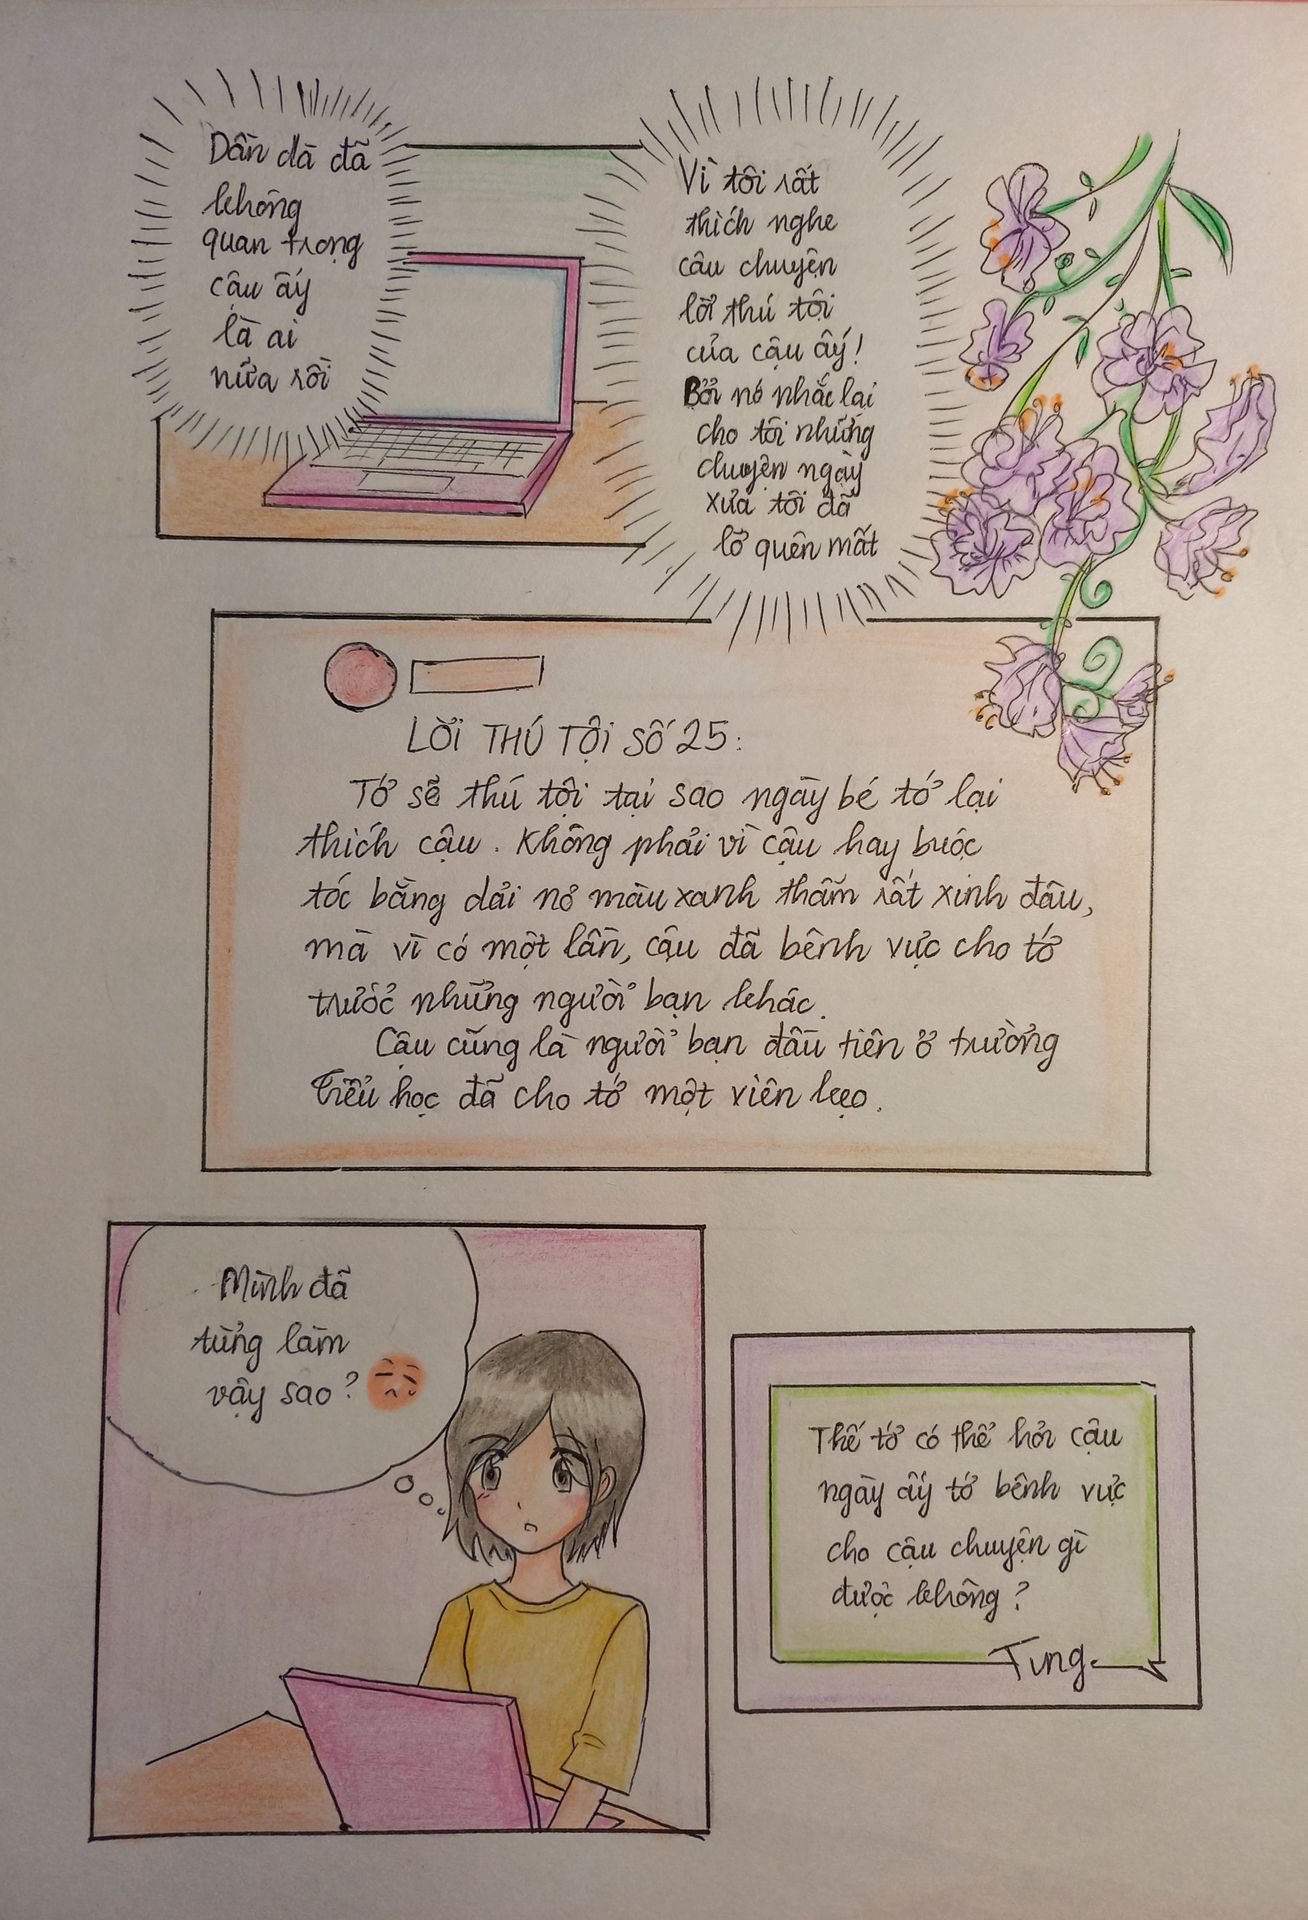 Dần dà đã
không
quan trọng
cậu ấy
là ai
nữa rồi
Vì tôi rất
thích nghe
câu chuyện
lời thú tội
của cậu ấy!
Bởi nó nhắc lại
cho tôi những
chuyện ngày
xưa tôi đã
lỡ quên mất
LỜI THÚ TỘI SỐ 25:
Tớ sẽ thú tội tại sao ngày bé tớ lại
thích cậu. Không phải vì cậu hay buộc
tóc bằng dải nơ màu xanh thẫm rất xinh đâu,
mà vì có một lần, cậu đã bênh vực cho tớ
trước những người bạn khác.
Cậu cũng là người bạn đầu tiên ở trường
Tiểu học đã cho tớ một viên kẹo.
Mình đã
từng làm
vậy sao?
Thế tớ có thể hỏi cậu
ngày ấy tớ bênh vực
cho cậu chuyện gì
được không?
Ting